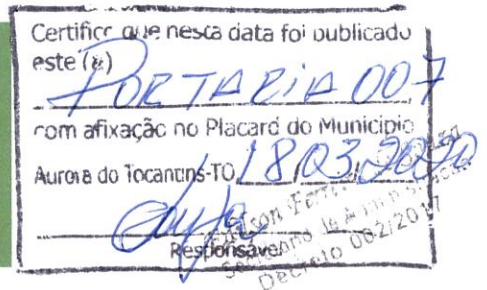 Certifico que nesta data foi publicado
este (a)
PORTARIA 007
com afixação no Placard do Municipio
Aurora do Tocantins-TO, 18/03/2020
Responsável
Decreto 002/2017